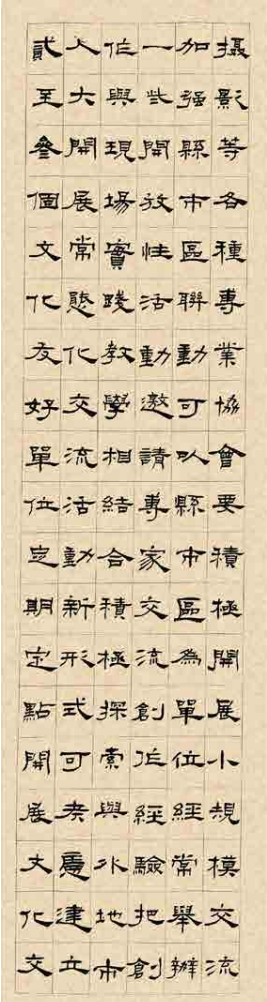 攝影等各種專業協會要積極開展小規模交流
加强縣市區聯動可以縣市區為單位經常舉辦
一些開放性活動邀請專家交流創作經驗把創
作與現場實踐教學相結合積極探索與外地市
人大開展常態化交流活動新形式可考慮建立
貳至叄個文化友好單位定期定點開展文化交